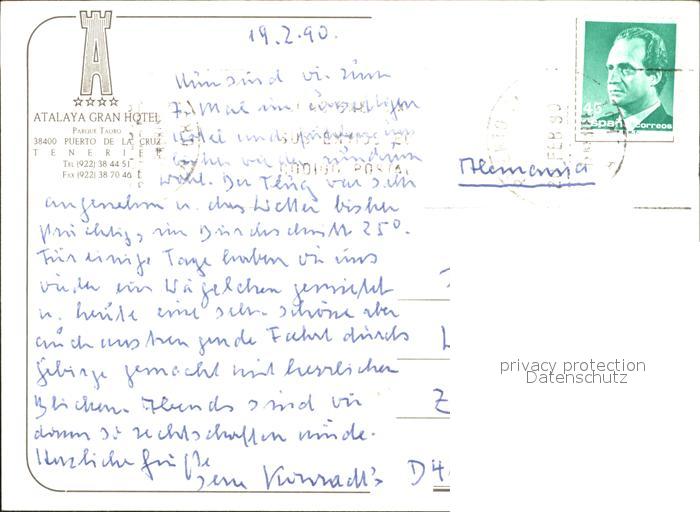 19.2.90.
ATALAYA GRAN HOTEL
PARQUE TAORO
38400 PUERTO DE LA CRUZ
TENERIFE
TEL (922) 38 44 51
FAX (922) 38 70 46
45
España correos
FEB 90
CODIGO POSTAL
Alemania
Nun sind wir zum
7. Mal im
Hotel und
wohl. Der Flug war sehr
angenehm u. das Wetter bisher
prächtig, im Durchschnitt 25°.
Für einige Tage haben wir uns
wieder ein Wägelchen gemietet
u. heute eine sehr schöne aber
auch anstrengende Fahrt durchs
Gebirge gemacht mit herrlichen
Blicken. Abends sind wir
dann so rechtschaffen müde.
Herzliche Grüße
Konradt's
D 4
Z
privacy protection
Datenschutz